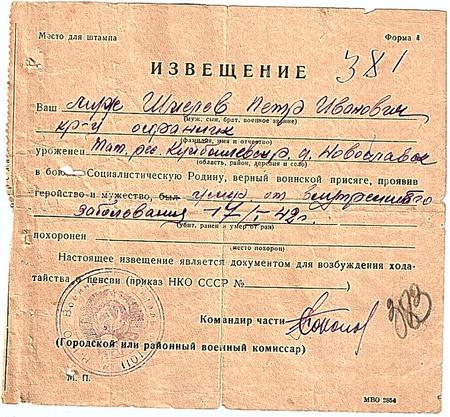 Место для штампа Форма 4
381
ИЗВЕЩЕНИЕ
Ваш муж Петр Иванович
(муж, сын, брат, военное звание)
кр-ц
(фамилия, имя и отчество)
уроженец Тат. рес. Куйбышевский р. д.
(область, район, деревня и село)
в бою за Социалистическую Родину, верный воинской присяге, проявив
геройство и мужество, был умер от внутреннего
заболевания 17/I-42г.
(убит, ранен и умер от ран)
похоронен
(место похорон)
Настоящее извещение является документом для возбуждения хода-
тайства о пенсии (приказ НКО СССР №
383
Командир части
(Городской или районный военный комиссар)
М. П. МВО 2854